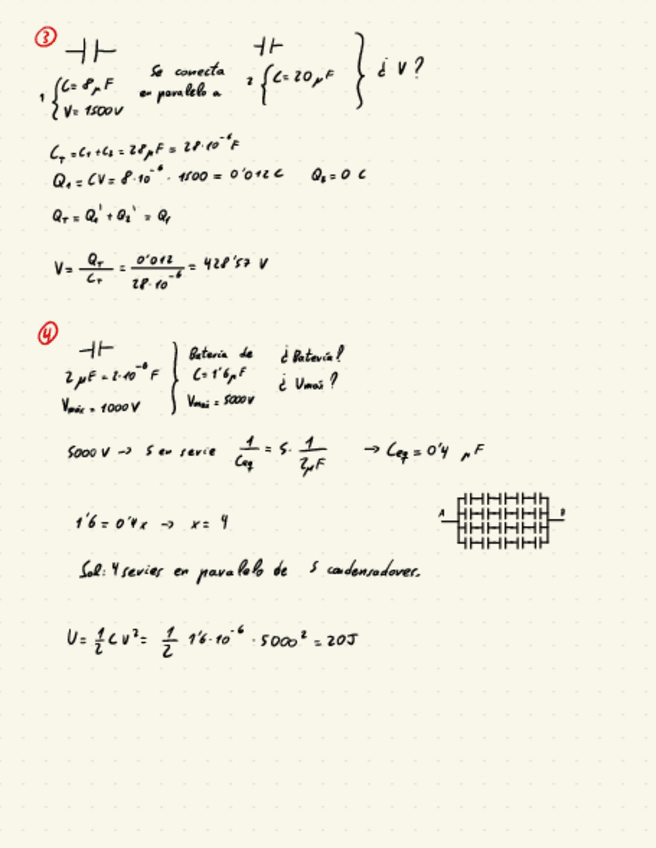 3
1 { C = 8 μF
V = 1500 V
Se conecta
en paralelo a
2 { C = 20 μF } ¿ V ?
C_T = C_1 + C_2 = 28 μF = 28·10^-6 F
Q_1 = CV = 8·10^-6 · 1500 = 0'012 C Q_2 = 0 C
Q_T = Q_1' + Q_2' = Q_1
V = Q_T / C_T = 0'012 / 28·10^-6 = 428'57 V
4
2 μF = 2·10^-6 F
Vmáx = 1000 V
Batería de
C = 1'6 μF
Vmax = 5000 V
¿ Batería ?
¿ Umax ?
5000 V → 5 en serie 1/Ceq = 5 · 1/2μF → Ceq = 0'4 μF
A B
1'6 = 0'4x → x = 4
Sol: 4 series en paralelo de 5 condensadores.
U = 1/2 C V^2 = 1/2 1'6·10^-6 · 5000^2 = 20 J